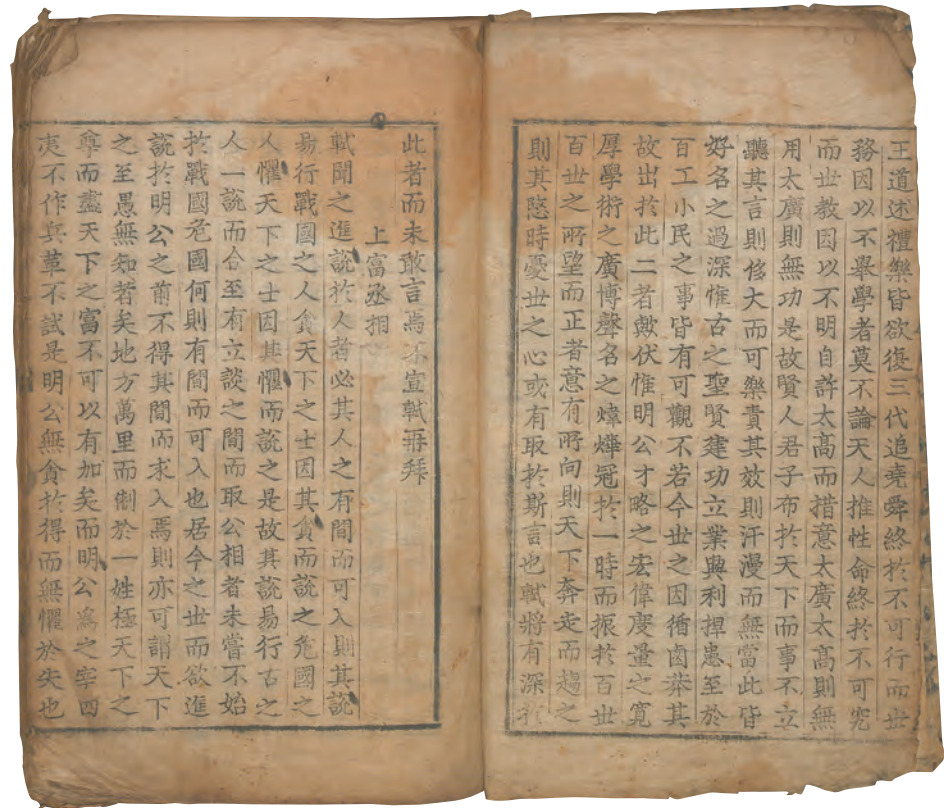 王道述禮樂皆欲復三代追堯舜終於不可行而世
務因以不舉學者莫不論天人推性命終於不可究
而世教因以不明自許太高而措意太廣太高則無
用太廣則無功是故賢人君子布於天下而事不立
聽其言則侈大而可樂責其效則汗漫而無當此皆
好名之過深惟古之聖賢建功立業興利捍患至於
百工小民之事皆有可觀不若今世之因循鹵莽其
故出於此二者歟伏惟明公才略之宏偉度量之寬
厚學術之廣博聲名之煒燁冠於一時而振於百世
百世之所望而正者意有所向則天下奔走而趨之
則其愍時憂世之心或有取於斯言也軾將有深於
此者而未敢言焉不宣軾再拜
上富丞相
軾聞之進說於人者必其人之有間而可入則其說
易行戰國之人貪天下之士因其貪而說之危國之
人懼天下之士因其懼而說之是故其說易行古之
人一說而合至有立談之間而取公相者未嘗不始
於戰國危國何則有間而可入也居今之世而欲進
說於明公之前不得其間而求入焉則亦可謂天下
之至愚無知者矣地方萬里而制於一姓極天下之
尊而盡天下之富不可以有加矣而明公爲之宰四
夷不作兵革不試是明公無貪於得而無懼於失也